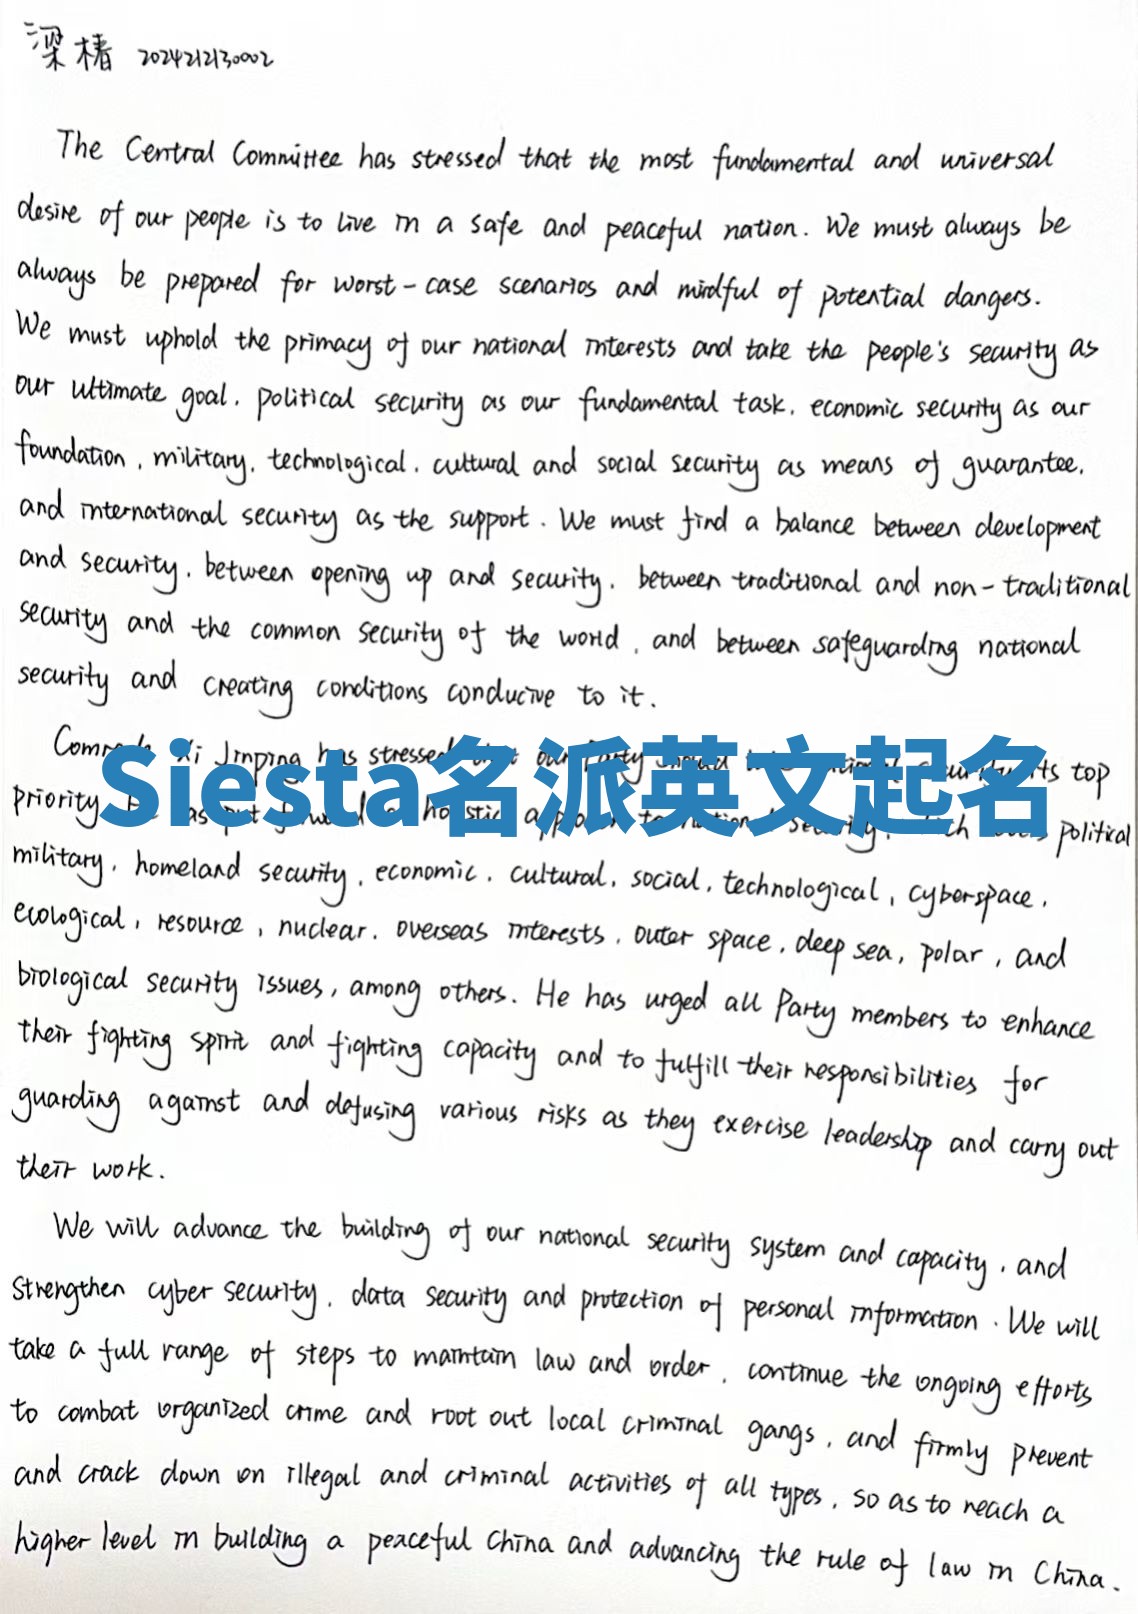 梁椿 2024212130002
The Central Committee has stressed that the most fundamental and universal
desire of our people is to live in a safe and peaceful nation. We must always be
always be prepared for worst-case scenarios and mindful of potential dangers.
We must uphold the primacy of our national interests and take the people's security as
our ultimate goal, political security as our fundamental task, economic security as our
foundation, military, technological, cultural and social security as means of guarantee,
and international security as the support. We must find a balance between development
and security, between opening up and security, between traditional and non-traditional
security and the common security of the world, and between safeguarding national
security and creating conditions conducive to it.
Xi Jinping has stressed our Party top
Siesta名派英文起名
priority political
military, homeland security, economic, cultural, social, technological, cyberspace,
ecological, resource, nuclear, overseas interests, outer space, deep sea, polar, and
biological security issues, among others. He has urged all Party members to enhance
their fighting spirit and fighting capacity and to fulfill their responsibilities for
guarding against and defusing various risks as they exercise leadership and carry out
their work.
We will advance the building of our national security system and capacity, and
strengthen cyber security, data security and protection of personal information. We will
take a full range of steps to maintain law and order, continue the ongoing efforts
to combat organized crime and root out local criminal gangs, and firmly prevent
and crack down on illegal and criminal activities of all types, so as to reach a
higher level in building a peaceful China and advancing the rule of law in China.